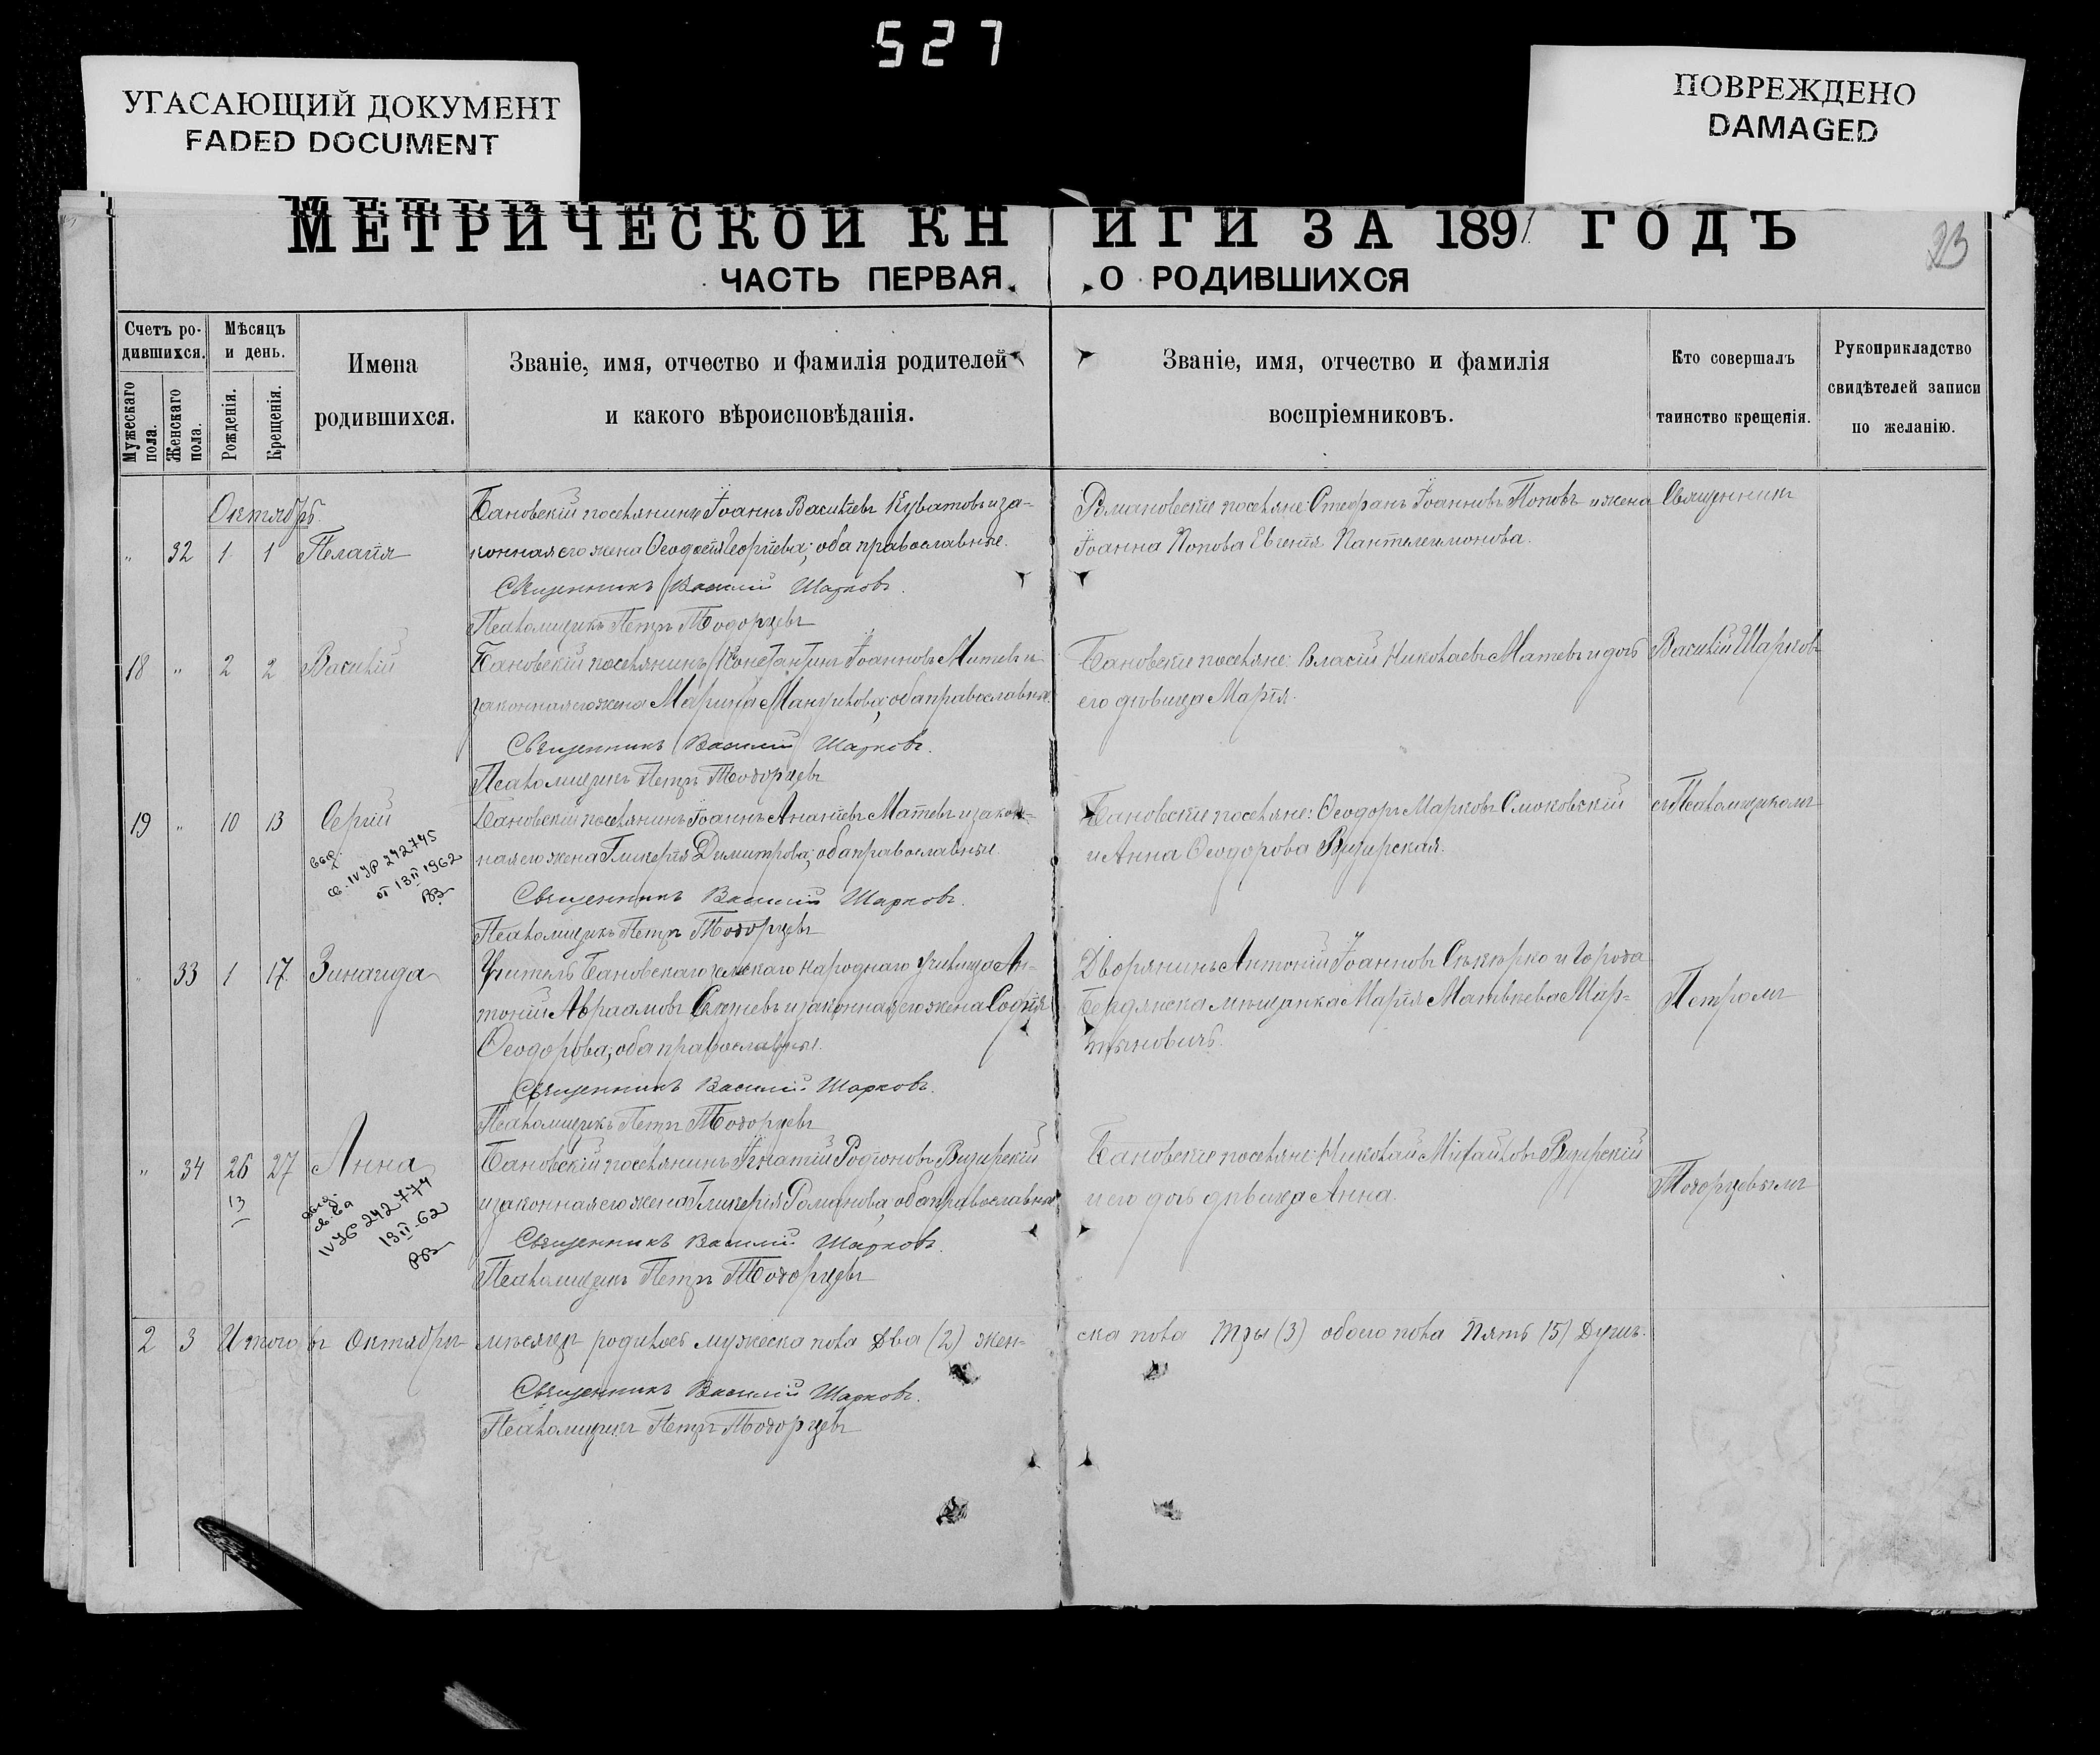 527
УГАСАЮЩИЙ ДОКУМЕНТ
FADED DOCUMENT
ПОВРЕЖДЕНО
DAMAGED
МЕТРИЧЕСКОЙ КНИГИ ЗА 1897 ГОДЪ
23
ЧАСТЬ ПЕРВАЯ. О РОДИВШИХСЯ
Счетъ ро-
дившихся.
Мужескаго пола.
Женскаго пола.
Мѣсяцъ
и день.
Рожденія.
Крещенія.
Имена
родившихся.
Званіе, имя, отчество и фамилія родителей
и какого вѣроисповѣданія.
Званіе, имя, отчество и фамилія
воспріемниковъ.
Кто совершалъ
таинство крещенія.
Рукоприкладство
свидѣтелей записи
по желанію.
Октябрь.
Бановскій поселянинъ Іоаннъ Васильевъ Куватовъ и за-
„ 32 1 1 Пелагія
конная его жена Ѳеодосія Георгіева; оба православные.
Романовскіе поселяне: Стефанъ Іоанновъ Поповъ и жена
Іоанна Попова Евгенія Пантелеимонова.
Священникъ
Священникъ Василій Шарковъ.
Псаломщикъ Петръ Тодорцевъ
18 „ 2 2 Василій
Бановскій поселянинъ Константинъ Іоанновъ Митевъ и
законная его жена Марина Мануилова; оба православные.
Бановскіе поселяне: Власій Николаевъ Матевъ и дочь
его дѣвица Марія.
Василій Шарковъ
Священникъ Василій Шарковъ.
Псаломщикъ Петръ Тодорцевъ
19 „ 10 13 Сергій
Бановскій поселянинъ Іоаннъ Ананіевъ Матевъ и закон-
ная его жена Гликерія Димитрова; оба православные.
Бановскіе поселяне: Ѳеодоръ Марковъ Смоковскій
и Анна Ѳеодорова Визирская.
съ Псаломщикомъ
выд.
св. IV УР 242745
от 13 II 1962
Священникъ Василій Шарковъ.
Псаломщикъ Петръ Тодорцевъ
33 1 17 Зинаида
Учитель Бановскаго земскаго народнаго училища Ан-
тоній Авраамовъ и законная его жена Софія
Ѳеодорова; оба православные.
Дворянинъ Антоній Іоанновъ и города
Бердянска мѣщанка Марія Матвѣева Мар-
тыновичъ.
Петромъ
Священникъ Василій Шарковъ.
Псаломщикъ Петръ Тодорцевъ
„ 34 26 27 Анна
13
Бановскій поселянинъ Игнатій Родіоновъ Визирскій
и законная его жена Гликерія Романова; оба православные
Бановскіе поселяне: Николай Михайловъ Визирскій
и его дочь дѣвица Анна.
Тодорцевымъ
выд.
св. ва
IV УР 242774
13 II-62
Священникъ Василій Шарковъ.
Псаломщикъ Петръ Тодорцевъ
2 3 Итого въ Октябрѣ мѣсяцѣ родилось мужеска пола два (2) жен-
ска пола три (3) обоего пола пять (5) душъ.
Священникъ Василій Шарковъ.
Псаломщикъ Петръ Тодорцевъ